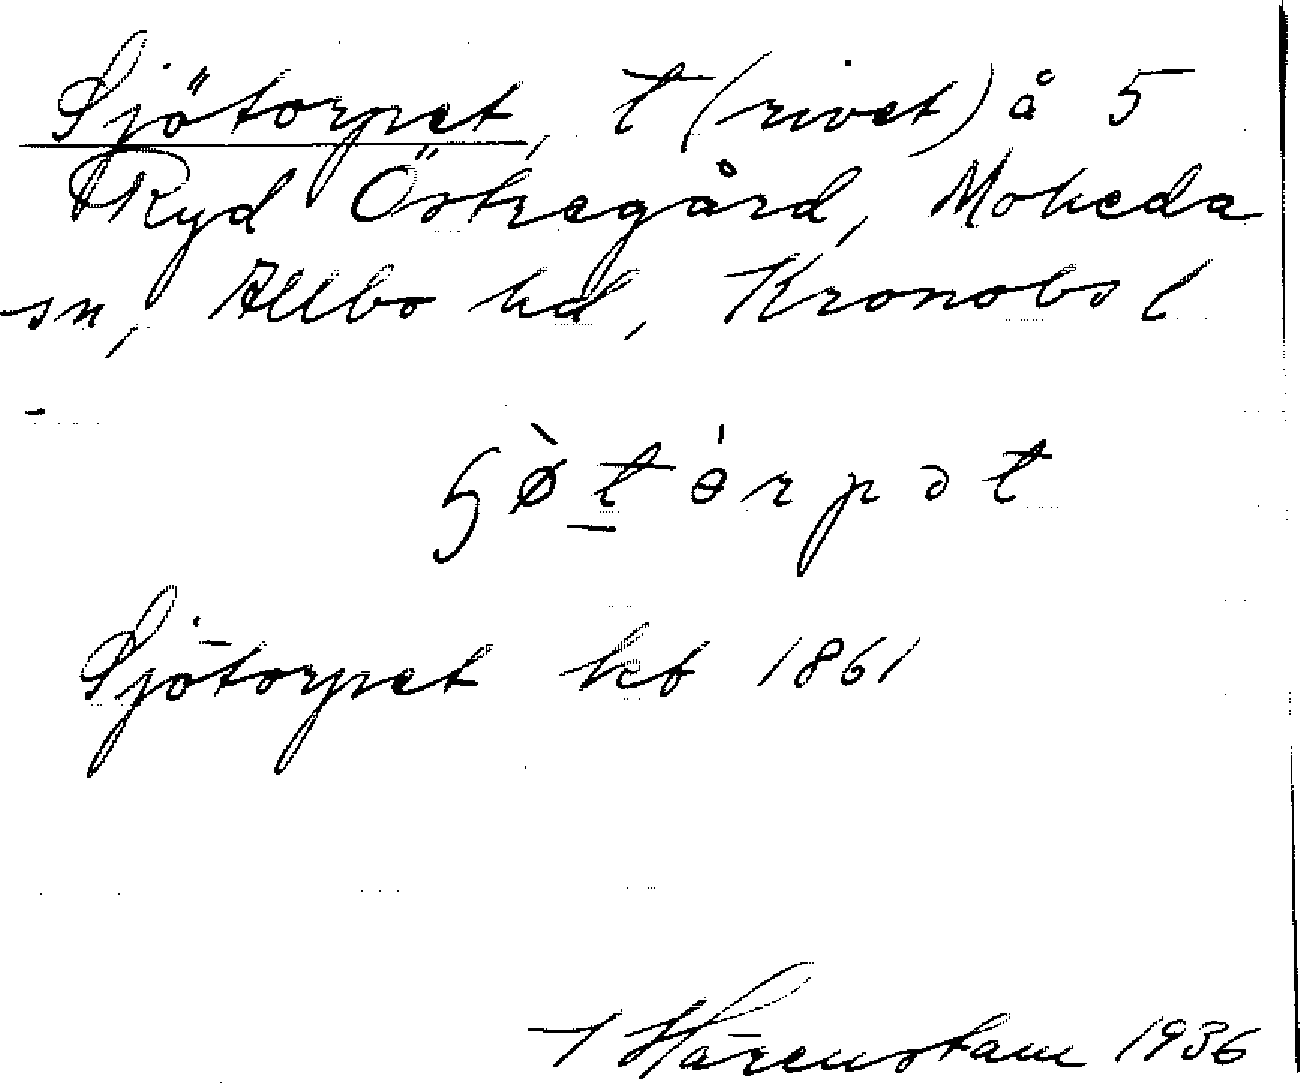 Sjötorpet, t (rivet) å 5
Ryd Östregård, Moheda
sn, Allbo hd, Kronobs l
-
ɧø̀t ɵ́rpət
Sjötorpet kb 1861
Härenstam 1936